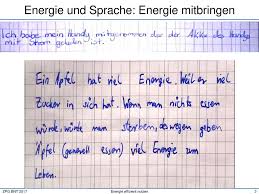 Energie und Sprache: Energie mitbringen
Ich habe mein Handy mitgenommen da der Akku des Handy
mit Strom geladen ist.
Ein Apfel hat viel Energie. Weil er viel
Zucker in sich hat. Wenn man nichts essen
würde, würde man sterben, deswegen geben
Äpfel (generell essen) viel Energie zum
Leben.
Energie effizient nutzen
3